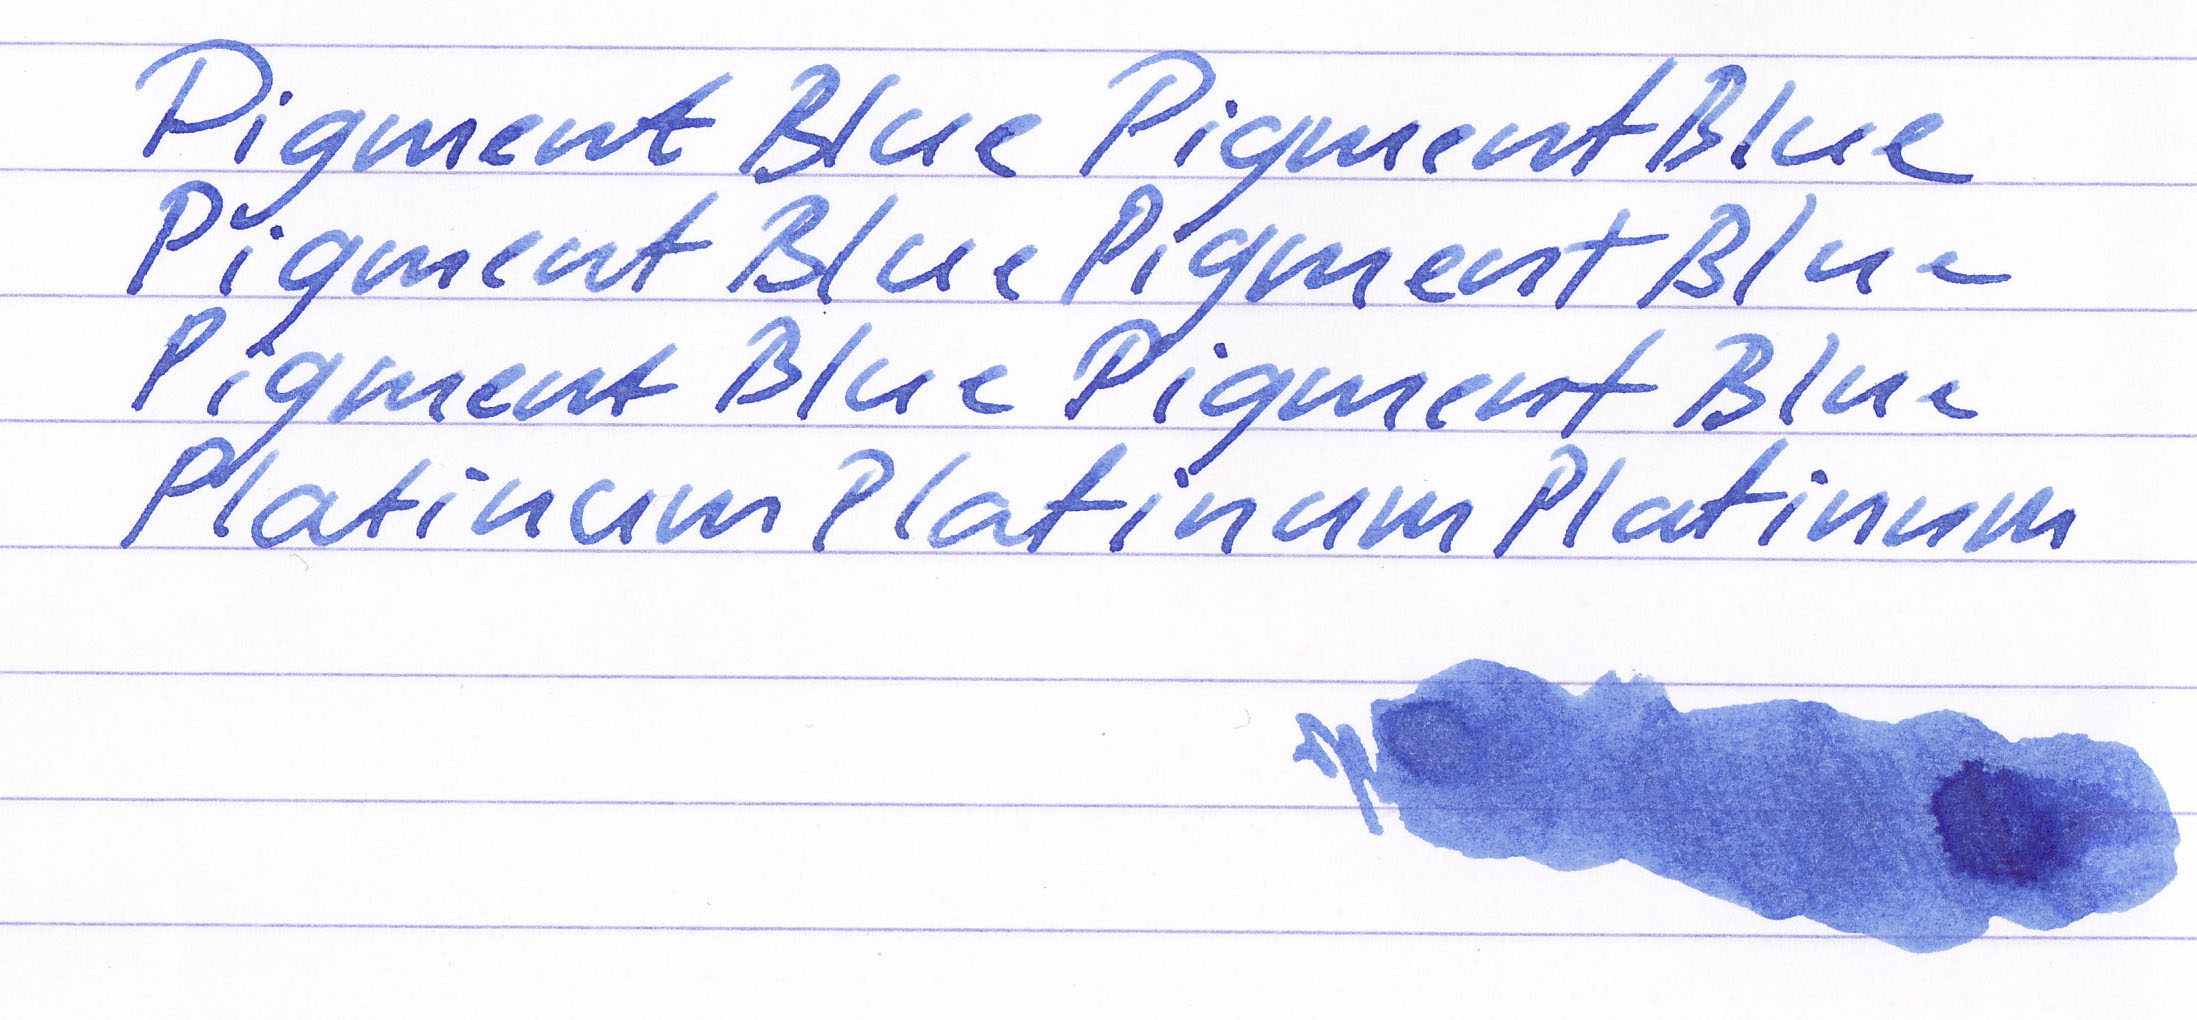 Pigment Blue Pigment Blue
Pigment Blue Pigment Blue
Pigment Blue Pigment Blue
Platinum Platinum Platinum